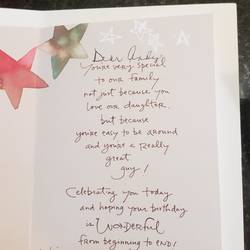 Dear Andy,
You're very special
to our family
not just because you
love our daughter,
but because
you're easy to be around
and you're a really
great
guy!
Celebrating you today
and hoping your birthday
is WONDERFUL
from beginning to end!